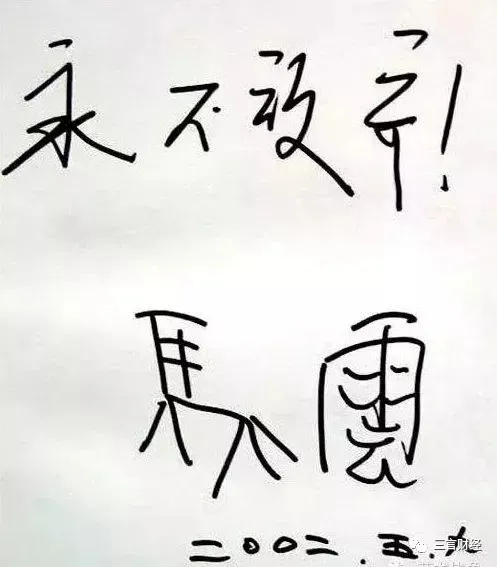 永不放弃!
馬雲
二〇〇二.五.九
三言财经